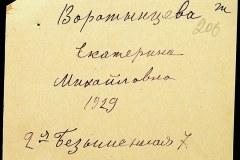 Воротынцева
206
Екатерина
Михайловна
1929
2ая Безыменная 7